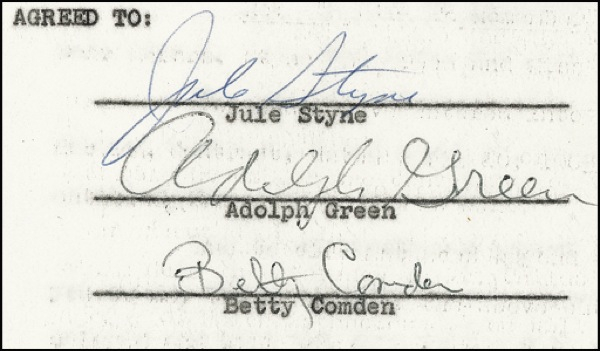 AGREED TO:
Jule Styne
Jule Styne
Adolph Green
Adolph Green
Betty Comden
Betty Comden